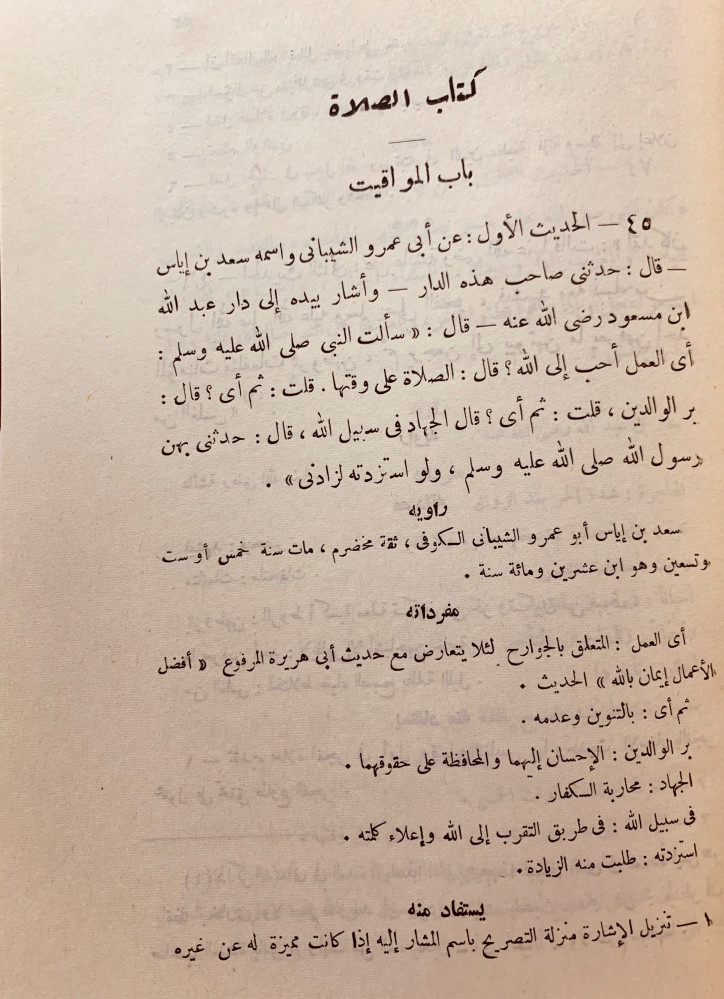 كتاب الصلاة
باب المواقيت
٤٥ — الحديث الأول : عن أبى عمرو الشيبانى واسمه سعد بن إياس
— قال : حدثنى صاحب هذه الدار — وأشار بيده إلى دار عبد الله
ابن مسعود رضى الله عنه — قال : « سألت النبى صلى الله عليه وسلم :
أى العمل أحب إلى الله ؟ قال : الصلاة على وقتها . قلت : ثم أى ؟ قال :
بر الوالدين ، قلت : ثم أى ؟ قال الجهاد فى سبيل الله ، قال : حدثنى بهن
رسول الله صلى الله عليه وسلم ، ولو استزدته لزادنى » .
راويه
سعد بن إياس أبو عمرو الشيبانى الكوفى ، ثقة مخضرم ، مات سنة خمس أو ست
وتسعين وهو ابن عشرين ومائة سنة .
مفرداته
أى العمل : المتعلق بالجوارح لئلا يتعارض مع حديث أبى هريرة المرفوع « أفضل
الأعمال إيمان بالله » الحديث .
ثم أى : بالتنوين وعدمه .
بر الوالدين : الإحسان إليهما والمحافظة على حقوقهما .
الجهاد : محاربة الكفار .
فى سبيل الله : فى طريق التقرب إلى الله وإعلاء كلمته .
استزدته : طلبت منه الزيادة .
يستفاد منه
١ — تنزيل الإشارة منزلة التصريح باسم المشار إليه إذا كانت مميزة له عن غيره